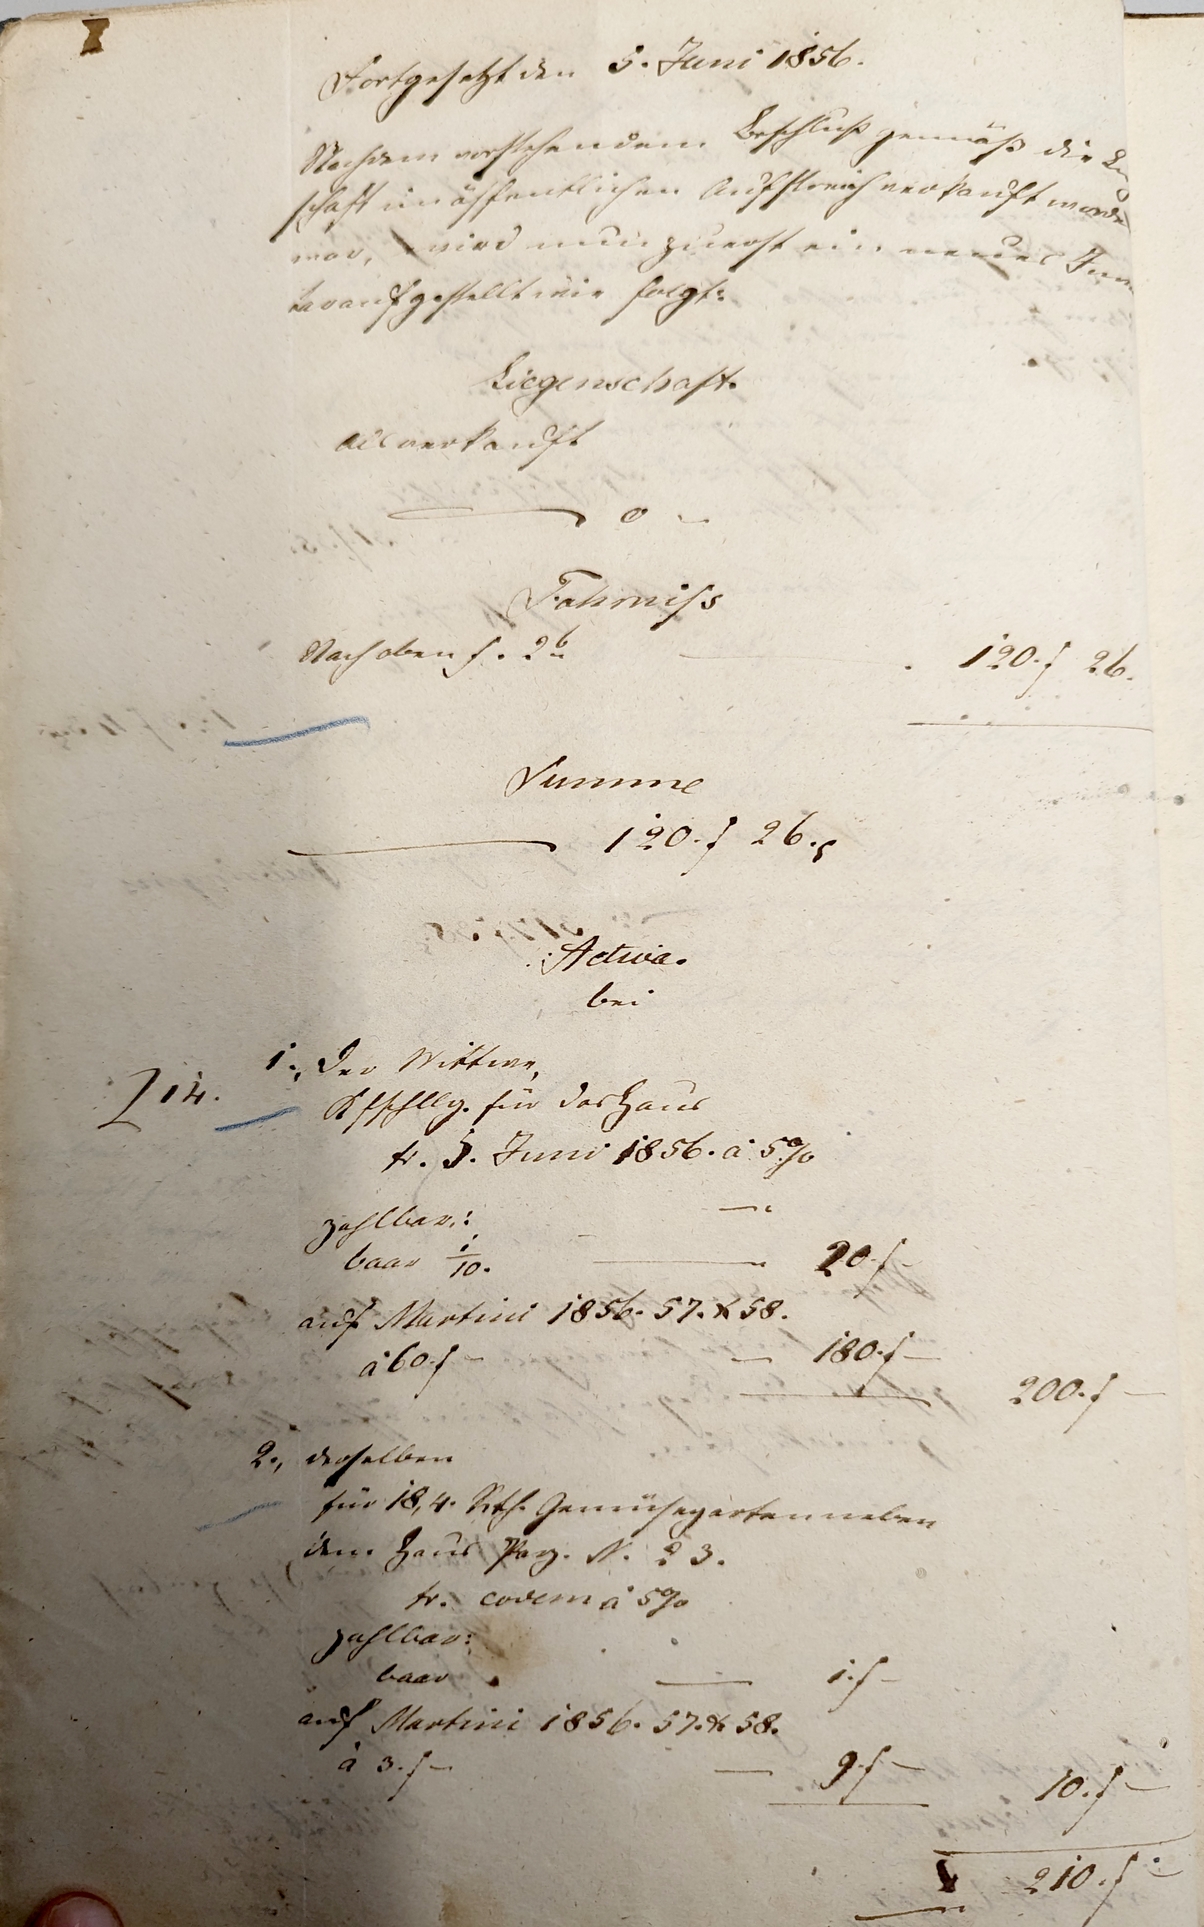 Fortgesetzt den 5. Juni 1856.
Nachdem vorstehendem Beschluß gemäß die
schaft im öffentlichen Aufstreich verkauft worde
war, wird nun zuerst ein neues Inven
tar aufgestellt wie folgt:
Liegenschaft.
all verkauft
— 0 —
Fahrniss
Nach oben f. 2b — 120. f 26.
Summe
— 120. f 26.
Activa.
bei
1., Der Wittwe,
14.
für das Haus
tr. 5. Juni 1856. à 5%
zahlbar:
baar 1/10. — 20. f —
auf Martini 1856. 57. & 58.
à 60 f — — 180. f —
200. f —
2., derselben
für 18,4. Rth. Gemüsegarten neben
dem Haus Parz. N. 23.
tr. eodem à 5%
zahlbar:
baar — 1. f —
auf Martini 1856. 57. & 58.
à 3. f — — 9 f —
10. f —
210. f —